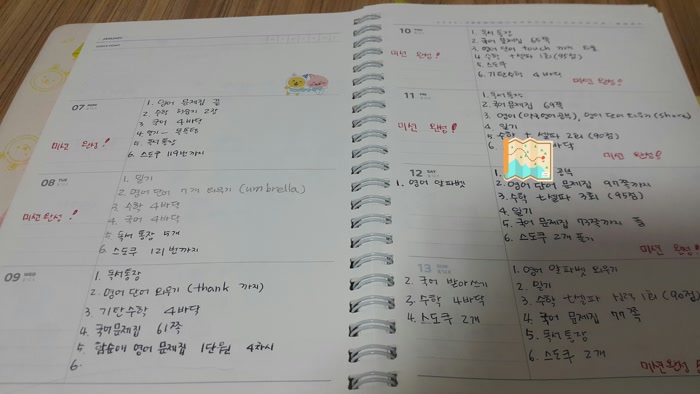 07
1. 영어 문제집 끝
2. 수학
3. 국어 4바닥
5. 국어통장
6. 스도쿠 119번까지
미션 완성!
08
1. 일기
2. 영어단어 7개 외우기 (umbrella)
3. 수학 4바닥
4. 국어 4바닥
5. 독서 통장 5개
6. 스도쿠 121번까지
미션완성!
09 WED
1. 독서통장
2. 영어단어 외우기 (thank 까지)
3. 기탄수학 4바닥
4. 국어문제집 61쪽
5. 영어 문제집 1단원 4차시
6.
10
1. 독서통장
2. 국어 문제집 65쪽
3. 영어 단어 touch 까지
4. 수학 1회(95점)
5. 스도쿠
6. 기탄수학 4바닥
미션 완성!
11
1. 독서통장
2. 국어문제집 69쪽
3. 영어 영어 단어 외우기 (share)
4. 일기
5. 수학 2회 (90점)
6. 바닥
미션 완성!
미션 완성!
12
1. 영어 알파벳
1.
2. 영어 단어 문제집 97쪽까지
3. 수학 3회 (95점)
4. 일기
5. 국어 문제집 73쪽까지
6. 스도쿠 2개 풀기
미션 완성!
13
2. 국어 받아쓰기
3. 수학 4바닥
4. 스도쿠 2개
1. 영어 알파벳 외우기
2. 일기
3. 수학 1회 (90점)
4. 국어 문제집 77쪽
5. 독서통장
6. 스도쿠 2개
미션완성